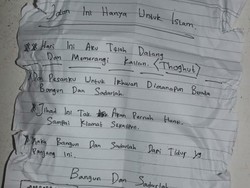 Jalan Ini Hanya Untuk Islam
Hari Ini Aku Telah Datang
Dan Memerangi Kalian. (Thoghut)
Pesanku Untuk Ikhwan Dimanapun Berada
Bangun Dan Sadarlah
Jihad Ini Tak Akan Pernah Henti
Sampai Kiamat
Bangun Dan Sadarlah Dari Tidur
Panjang Ini.
Bangun Dan Sadarlah